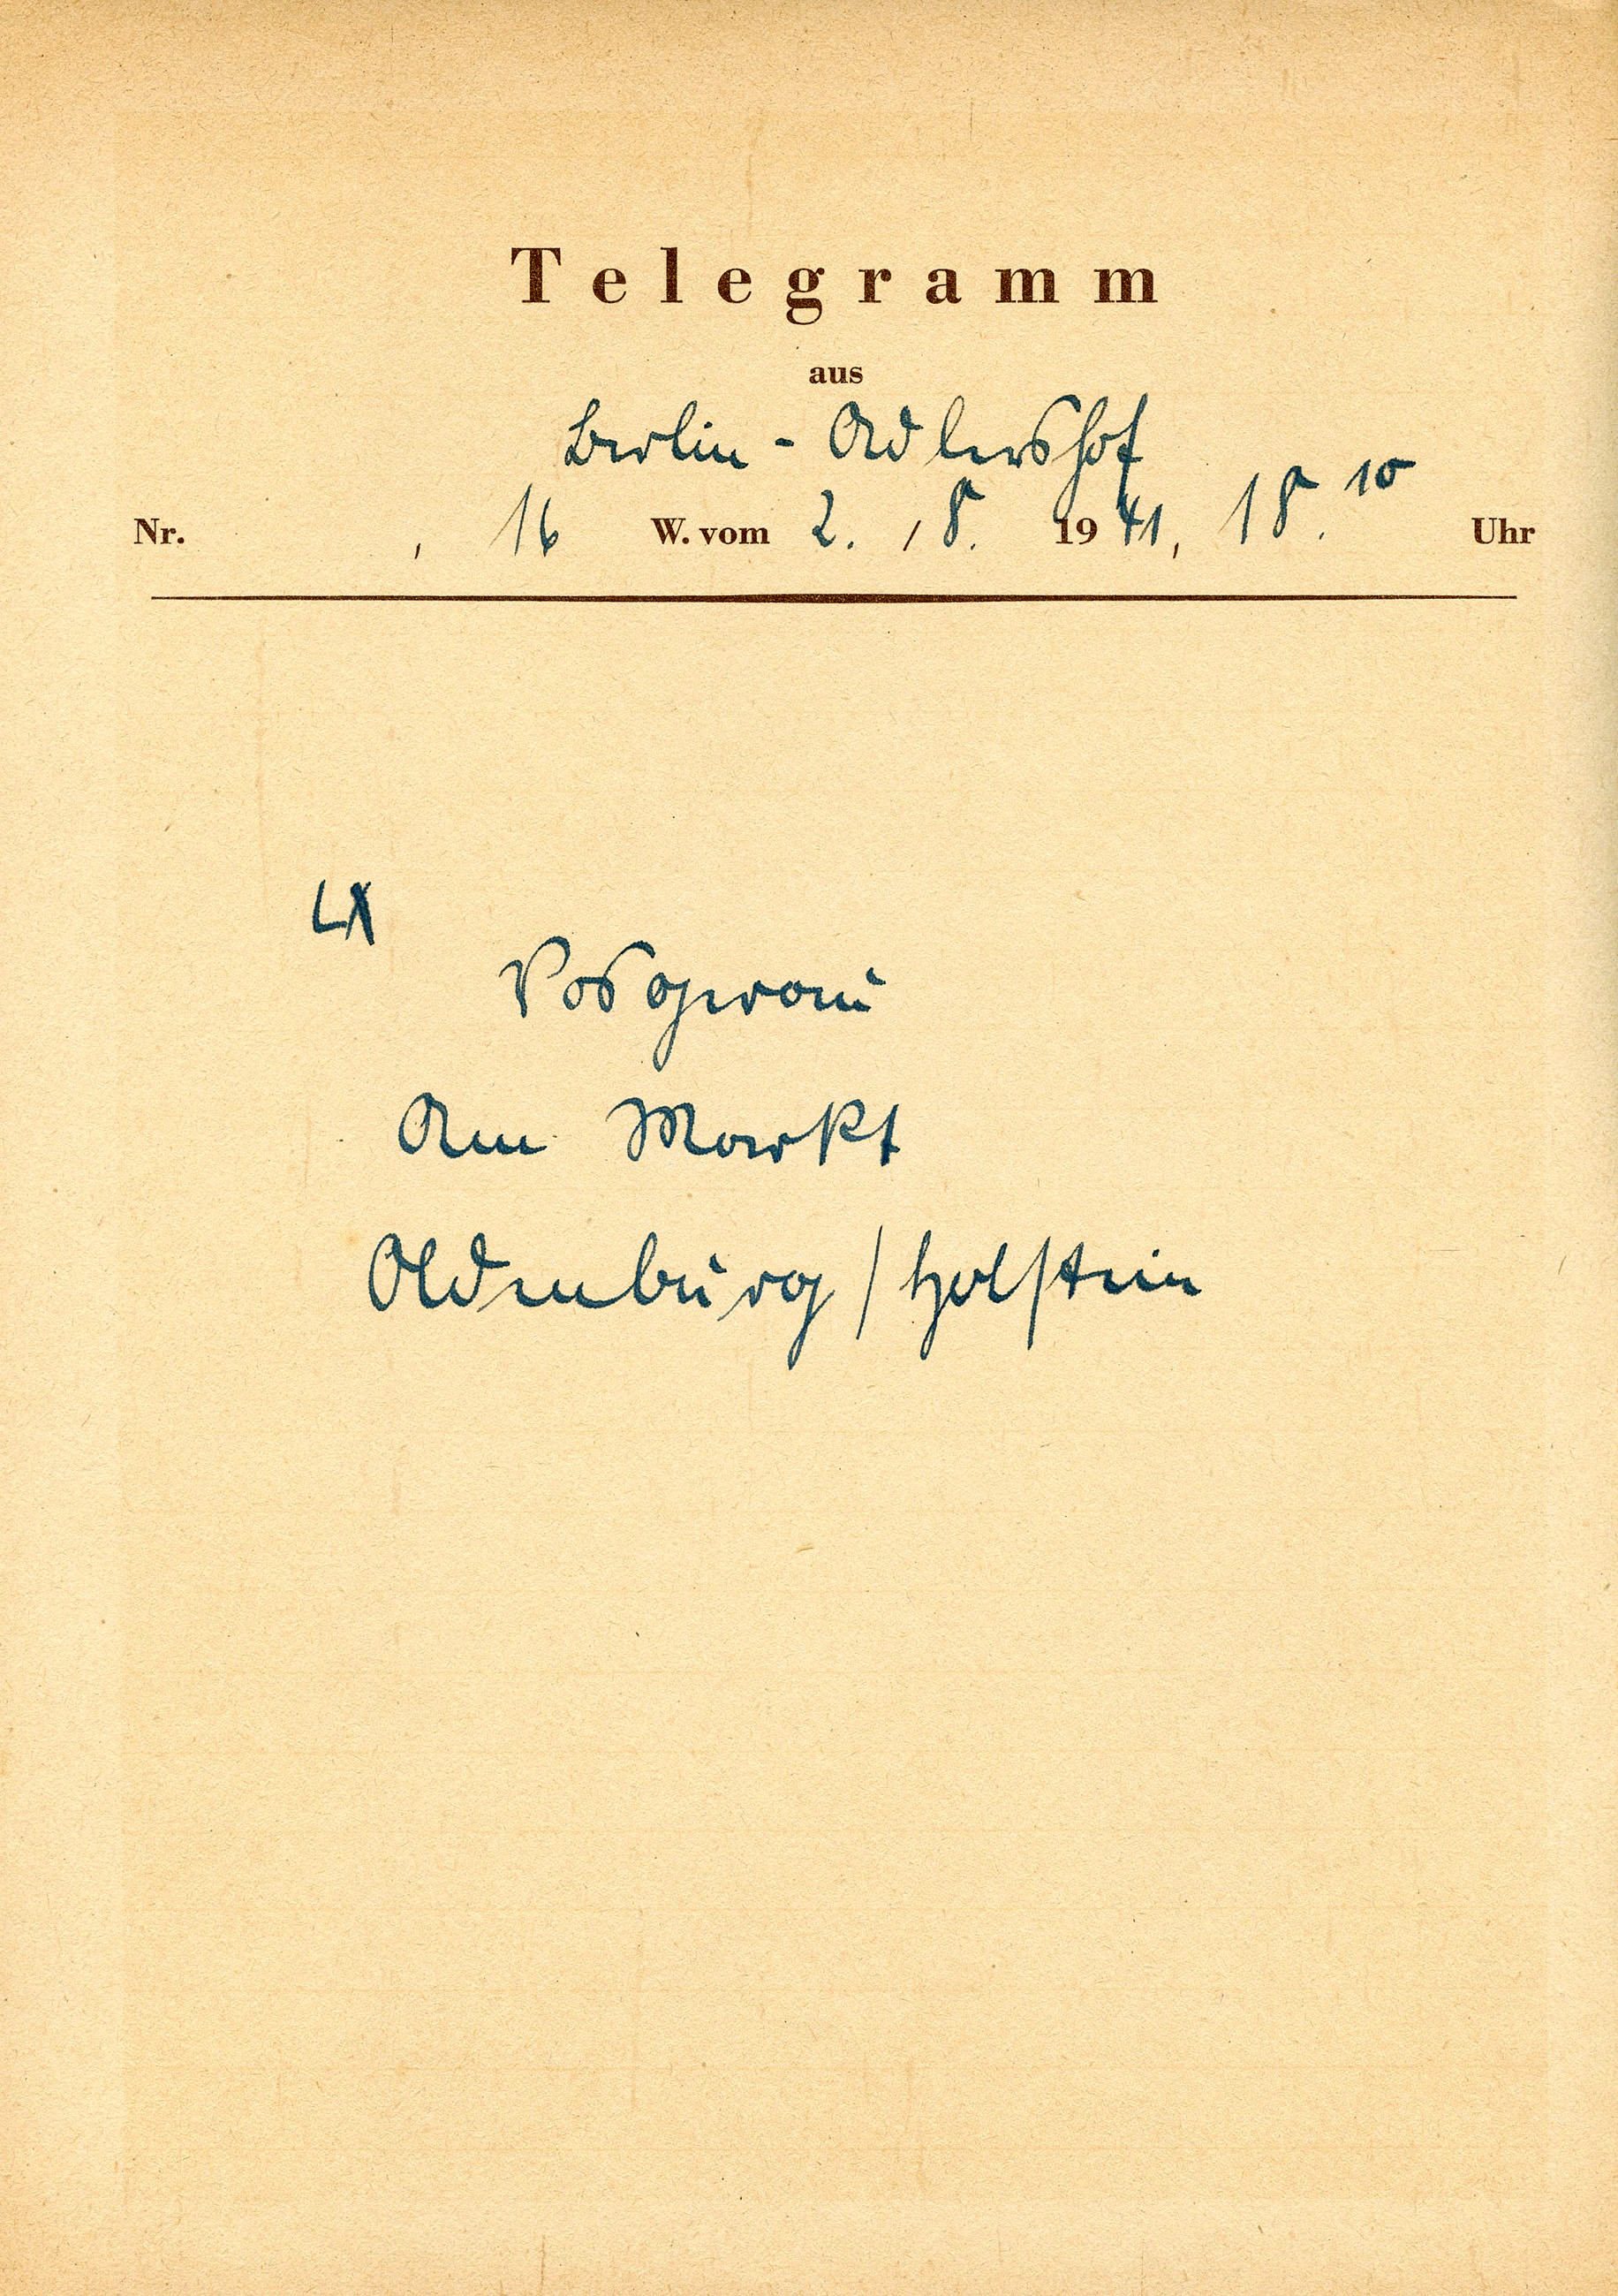 Telegramm
aus
Berlin - Adlershof
Nr. , 16 W. vom 2. , 8. 1941, 18.10 Uhr
LX
Vosgerau
Am Markt
Oldenburg / Holstein